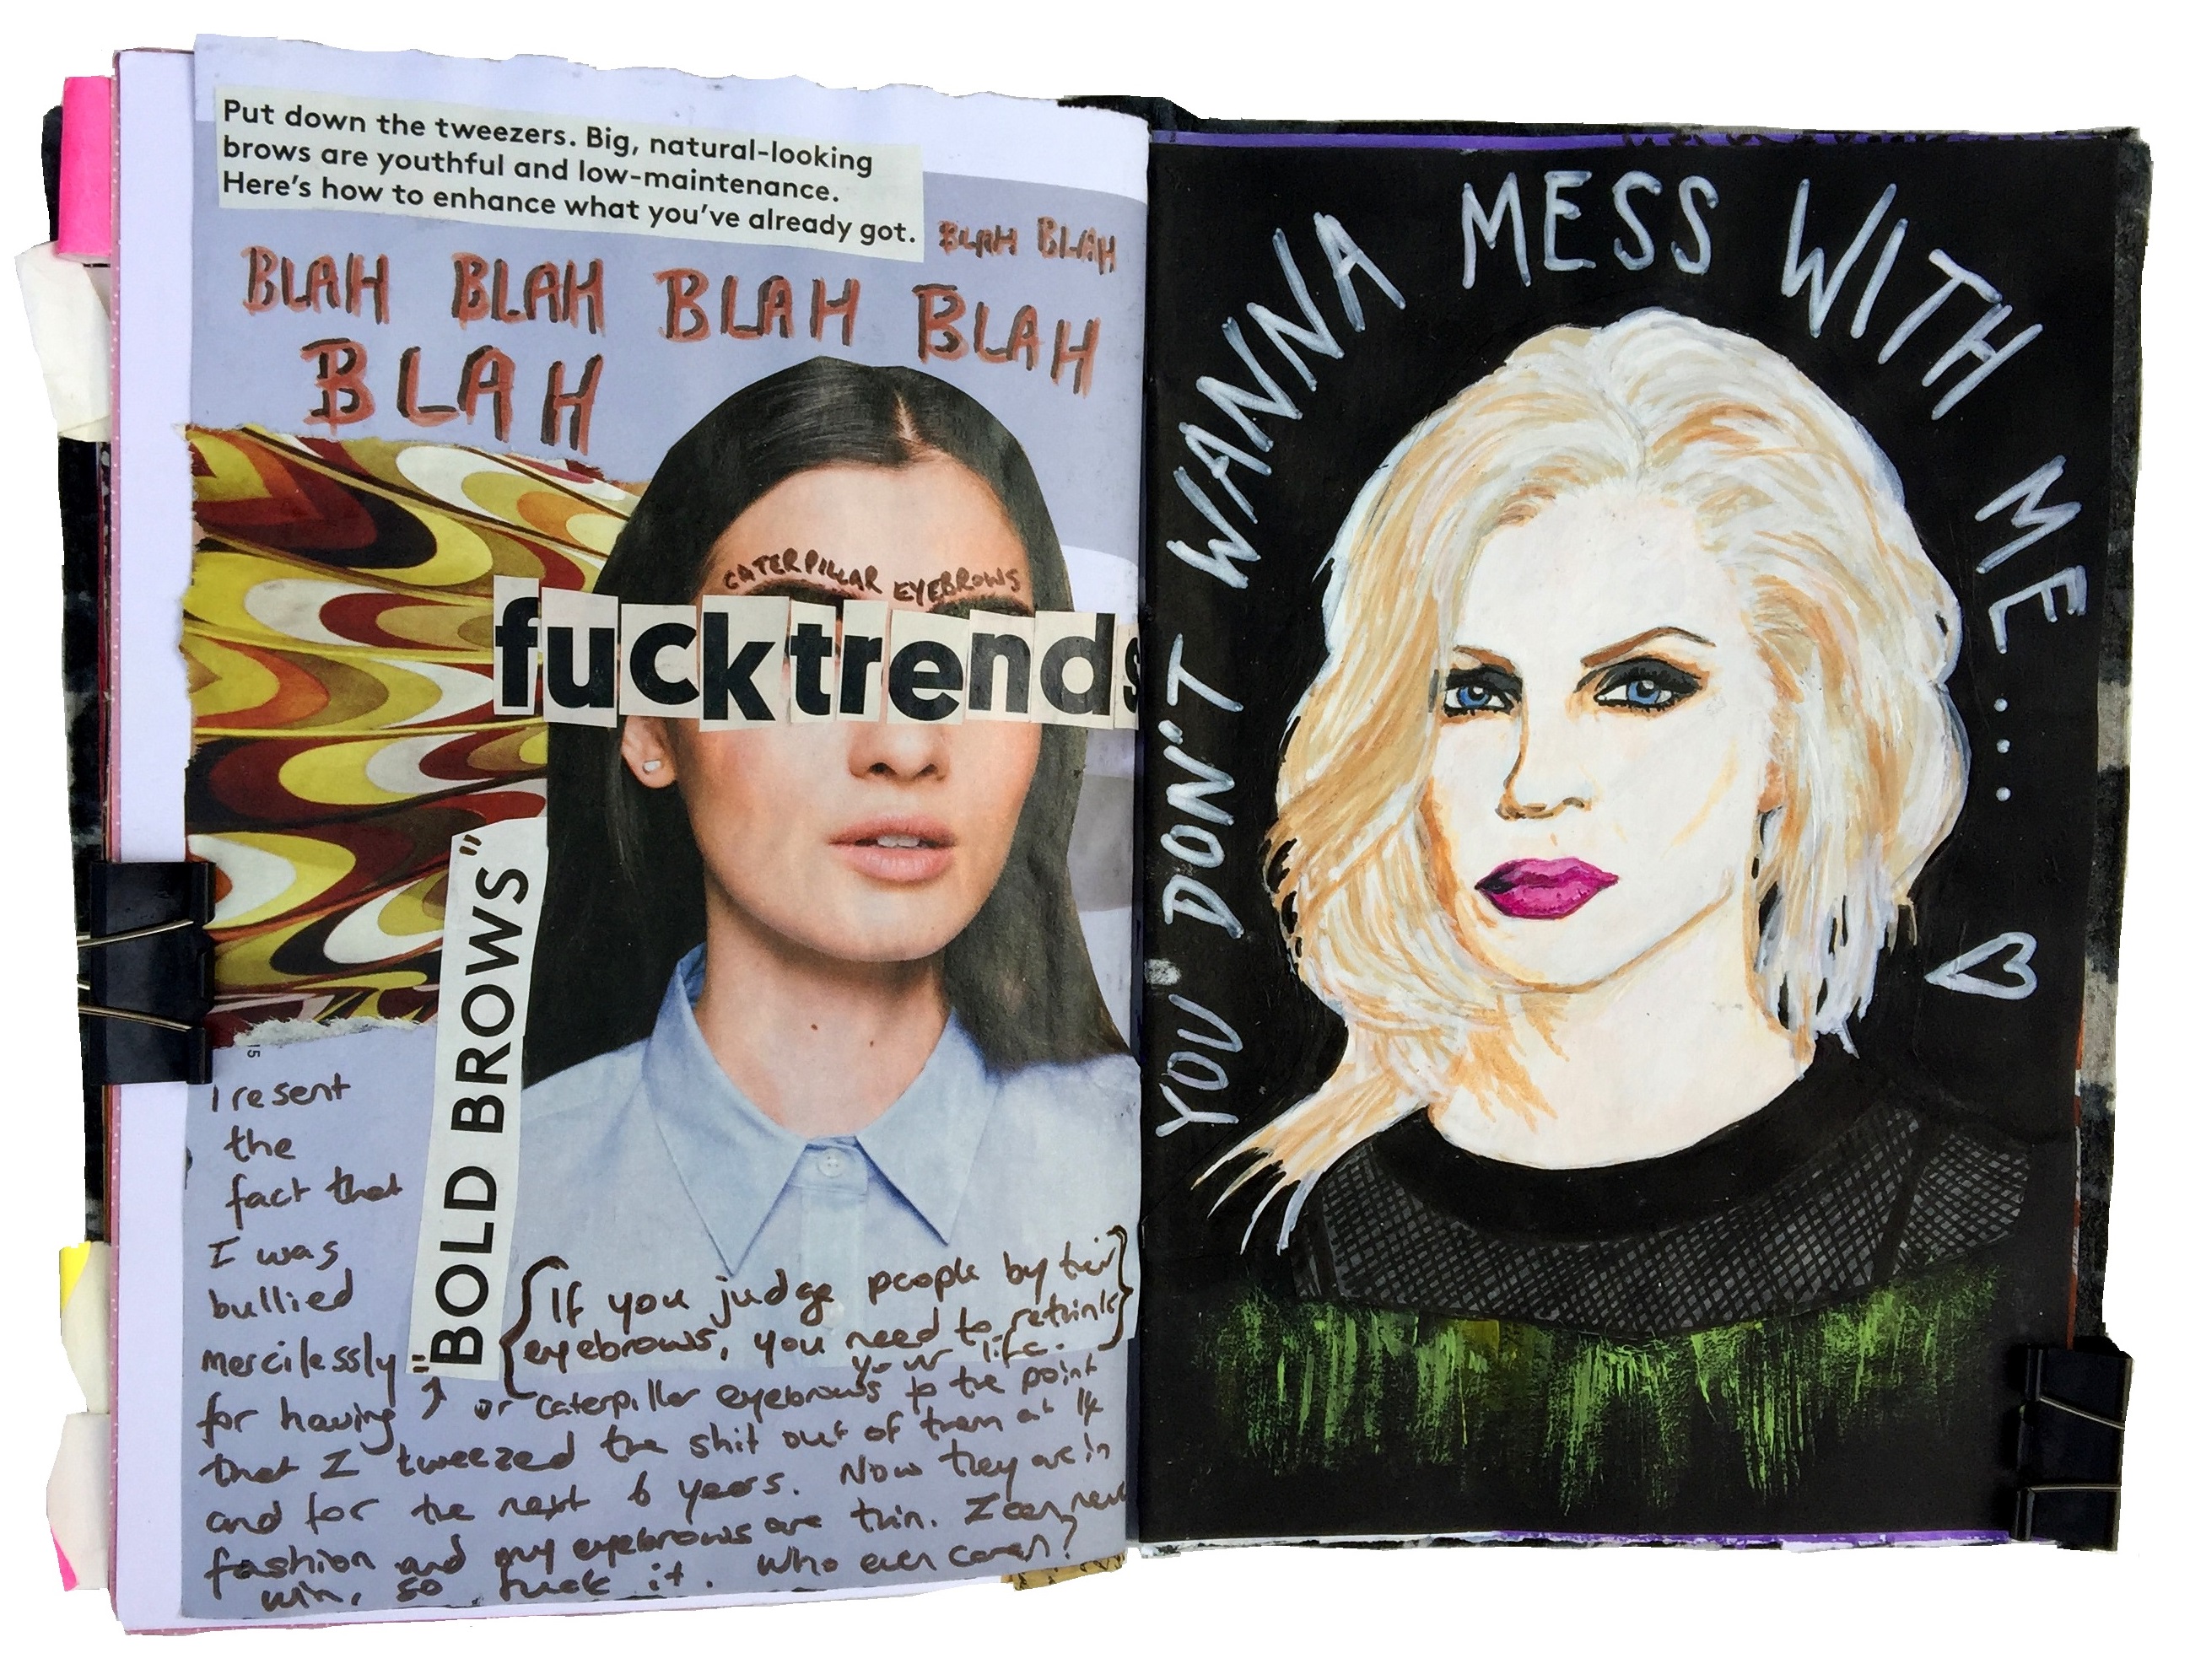 Put down the tweezers. Big, natural-looking
brows are youthful and low-maintenance.
Here's how to enhance what you've already got.
BLAH BLAH
BLAH BLAH BLAH BLAH
BLAH
CATERPILLAR EYEBROWS
fucktrends
"BOLD BROWS"
I resent
the
fact that
I was
bullied
mercilessly
for having
{If you judge people by their}
eyebrows, you need to rethink
your life.
or caterpillar eyebrows to the point
that I tweezed the shit out of them at 14
and for the next 6 years. Now they are in
fashion and my eyebrows are thin. I can never
win, so fuck it. Who even cares?
15
YOU DON'T WANNA MESS WITH ME....